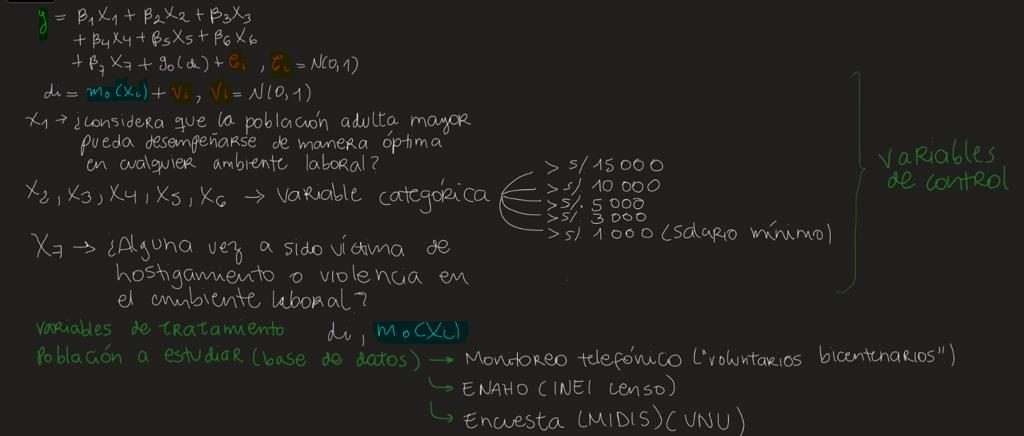 y = β₁X₁ + β₂X₂ + β₃X₃
+ β₄X₄ + β₅X₅ + β₆X₆
+ β₇X₇ + g₀(di) + Ɛi , Ɛi = N(0,1)
di = m₀(Xi) + Vi , Vi = N(0,1)
X₁ → ¿considera que la población adulta mayor
pueda desempeñarse de manera óptima
en cualquier ambiente laboral?
X₂, X₃, X₄, X₅, X₆ → variable categórica
> s/. 15 000
> s/. 10 000
> s/. 5 000
> s/. 3 000
> s/. 1 000 (salario mínimo)
X₇ → ¿Alguna vez a sido víctima de
hostigamiento o violencia en
el ambiente laboral?
variables
de control
variables de tratamiento di, m₀(Xi)
Población a estudiar (base de datos) → Monitoreo telefónico ("voluntarios bicentenarios")
↳ ENAHO (INEI censo)
↳ Encuesta (MIDIS) (VNU)